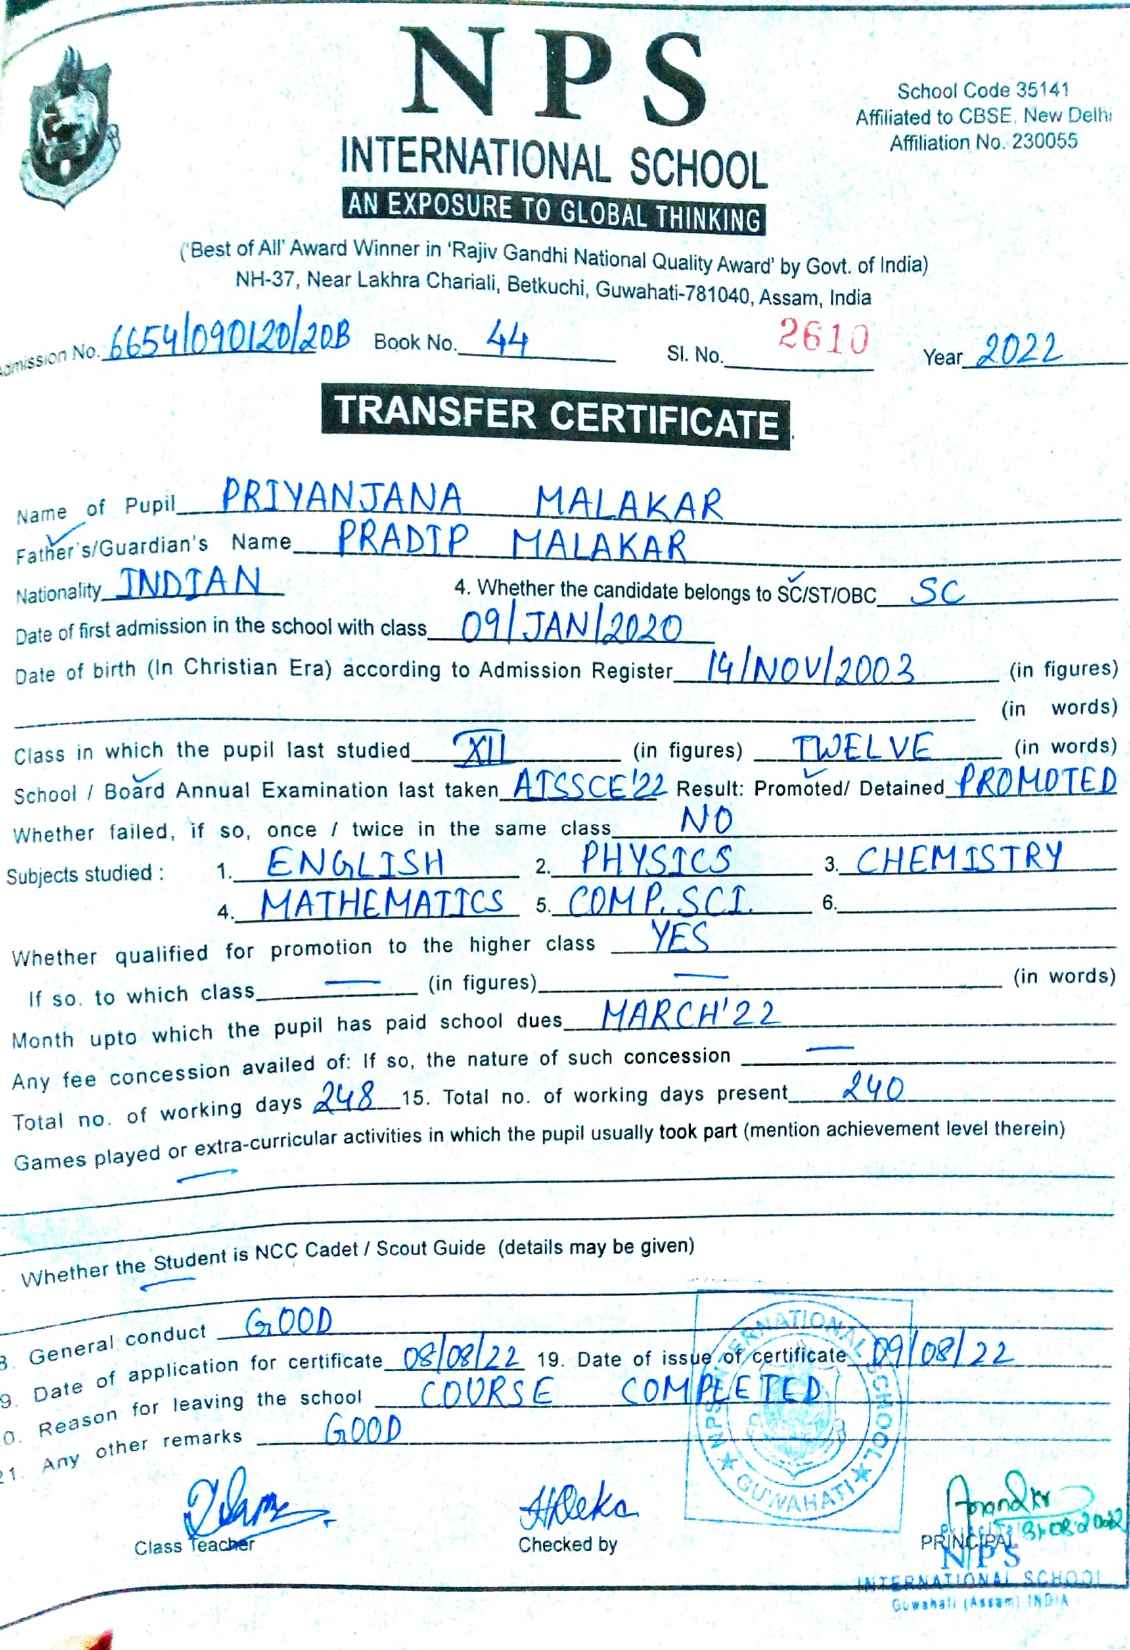 N P S
INTERNATIONAL SCHOOL
AN EXPOSURE TO GLOBAL THINKING
School Code 35141
Affiliated to CBSE, New Delhi
Affiliation No. 230055
('Best of All' Award Winner in 'Rajiv Gandhi National Quality Award' by Govt. of India)
NH-37, Near Lakhra Chariali, Betkuchi, Guwahati-781040, Assam, India
Admission No. 6654/090120/20B Book No. 44 Sl. No. 2610 Year 2022
TRANSFER CERTIFICATE
Name of Pupil PRIYANJANA MALAKAR
Father's/Guardian's Name PRADIP MALAKAR
Nationality INDIAN 4. Whether the candidate belongs to SC/ST/OBC SC
Date of first admission in the school with class 09/JAN/2020
Date of birth (In Christian Era) according to Admission Register 14/NOV/2003 (in figures)
(in words)
Class in which the pupil last studied XII (in figures) TWELVE (in words)
School / Board Annual Examination last taken AISSCE'22 Result: Promoted/ Detained PROMOTED
Whether failed, if so, once / twice in the same class NO
Subjects studied : 1. ENGLISH 2. PHYSICS 3. CHEMISTRY
4. MATHEMATICS 5. COMP. SCI. 6.
Whether qualified for promotion to the higher class YES
If so. to which class — (in figures) — (in words)
Month upto which the pupil has paid school dues MARCH'22
Any fee concession availed of: If so, the nature of such concession —
Total no. of working days 248 15. Total no. of working days present 240
Games played or extra-curricular activities in which the pupil usually took part (mention achievement level therein)
—
Whether the Student is NCC Cadet / Scout Guide (details may be given)
—
8. General conduct GOOD
9. Date of application for certificate 08/08/22 19. Date of issue of certificate 09/08/22
0. Reason for leaving the school COURSE COMPLETED
21. Any other remarks GOOD
NPS INTERNATIONAL SCHOOL
★ GUWAHATI ★
Class Teacher
Checked by
PRINCIPAL
NPS
INTERNATIONAL SCHOOL
Guwahati (Assam) INDIA